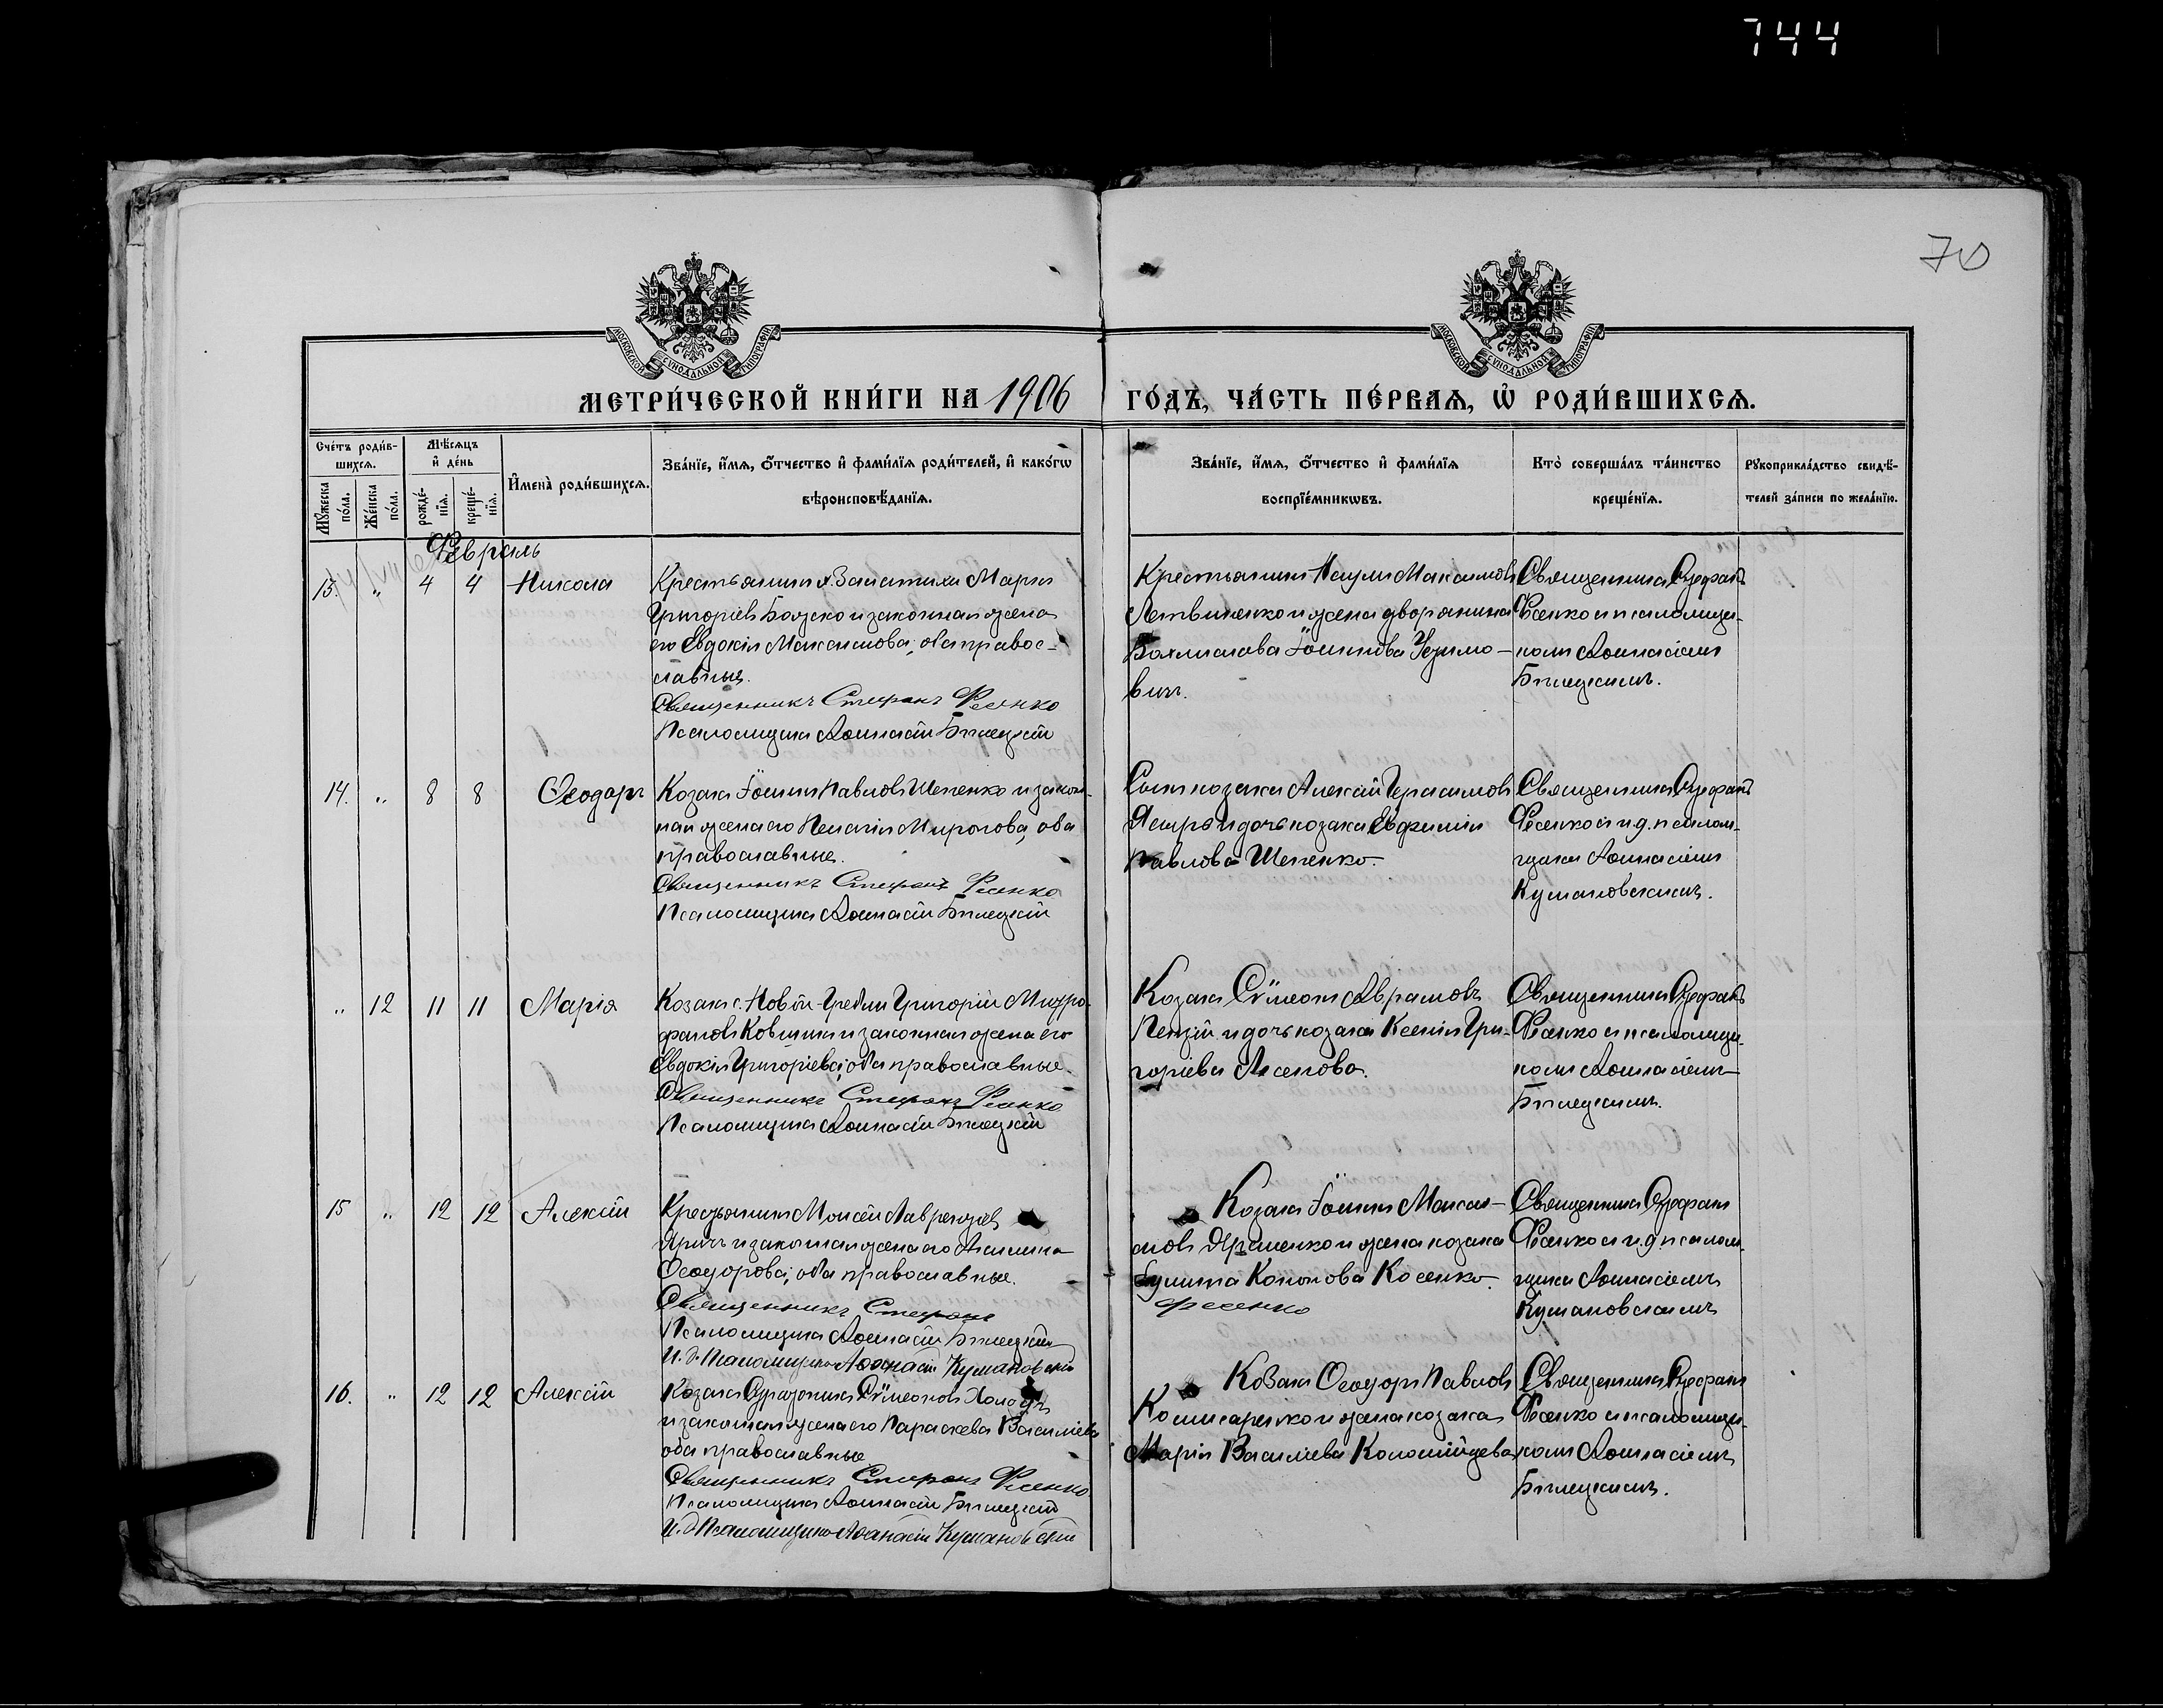 744
70
МОСКОВСКОЙ СѴНОДАЛЬНОЙ ТИПОГРАФІИ
МОСКОВСКОЙ СѴНОДАЛЬНОЙ ТИПОГРАФІИ
МЕТРИ́ЧЕСКОЙ КНИ́ГИ НА 1906 ГО́ДЪ, ЧА́СТЬ ПЕ́РВАѦ, Ѡ҆ РОДИ́ВШИХСѦ.
Сче́тъ роди́в-
шихсѧ.
Мꙋ́жеска по́ла.
Же́нска по́ла.
Мѣ́сѧцъ
и҆ де́нь
рожде́-
нїѧ.
креще́-
нїѧ.
И҆мена̀ роди́вшихсѧ.
Зва́нїе, и҆́мѧ, ѻ҆́тчество и҆ фами́лїѧ роди́телей, и҆ како́гѡ
вѣроисповѣ́данїѧ.
Зва́нїе, и҆́мѧ, ѻ҆́тчество и҆ фами́лїѧ
воспрїе́мникѡвъ.
Кто̀ соверша́лъ та́инство
креще́нїѧ.
Рꙋкоприкла́дство свидѣ́-
телей за́писи по жела́нїю.
Февраль
13. " 4 4 Никола
Крестьянинъ Марки
Григоріевъ Божко и законная жена
его Евдокія Максимова, оба правос-
лавные.
Священникъ Стефанъ Фесенко
Псаломщикъ Аѳанасій Бѣлецкій
Крестьянинъ Наумъ Максимовъ
Литвиненко и жена дворянина
Іоаннова
вичъ.
Священникъ Стефанъ
Фесенко и псаломщи-
комъ Аѳанасіемъ
Бѣлецкимъ.
14. " 8 8 Ѳеодоръ
Козакъ Іоаннъ Павловъ Шепенко и закон-
ная жена его Пелагія Миронова, оба
православные.
Священникъ Стефанъ Фесенко
Псаломщикъ Аѳанасій Бѣлецкій
Сынъ козака Алексій Герасимовъ
и дочь козака Евфимія
Павлова Шепенко.
Священникъ Стефанъ
Фесенко и и.д. псалом-
щика Аѳанасіемъ
Кумановскимъ.
" 12 11 11 Марія
Козакъ с. Новой-Гребли Григорій Митро-
фановъ Ковшикъ и законная жена его
Евдокія Григоріева, оба православные.
Священникъ Стефанъ Фесенко
Псаломщикъ Аѳанасій Бѣлецкій
Козакъ Сѵмеонъ Аврамовъ
и дочь козака Ксенія Гри-
горіева
Священникъ Стефанъ
Фесенко и псаломщи-
комъ Аѳанасіемъ
Бѣлецкимъ.
15 " 12 12 Алексій
Крестьянинъ Моисей Лаврентіев
и законная жена его Акилина
Ѳеодорова, оба православные.
Священникъ Стефанъ
Фесенко
Псаломщикъ Аѳанасій Бѣлецкій
И. д. Псаломщика Аѳанасій Кумановскій
Козакъ Іоаннъ Макси-
мовъ и жена козака
Кононова Косенко.
Священникъ Стефанъ
Фесенко и и.д. псалом-
щика Аѳанасіемъ
Кумановскимъ
16. " 12 12 Алексій
Козакъ Сѵмеоновъ Холодъ
и законная жена его Параскева Василіева
оба православные
Священникъ Стефанъ Фесенко
Псаломщикъ Аѳанасій Бѣлецкій
И. д Псаломщика Аѳанасій Кумановскій
Козакъ Ѳеодоръ Павловъ
Комисаренко и жена козака
Марія Василіева Коломійцева
Священникъ Стефанъ
Фесенко и псаломщи-
комъ Аѳанасіемъ
Бѣлецкимъ.